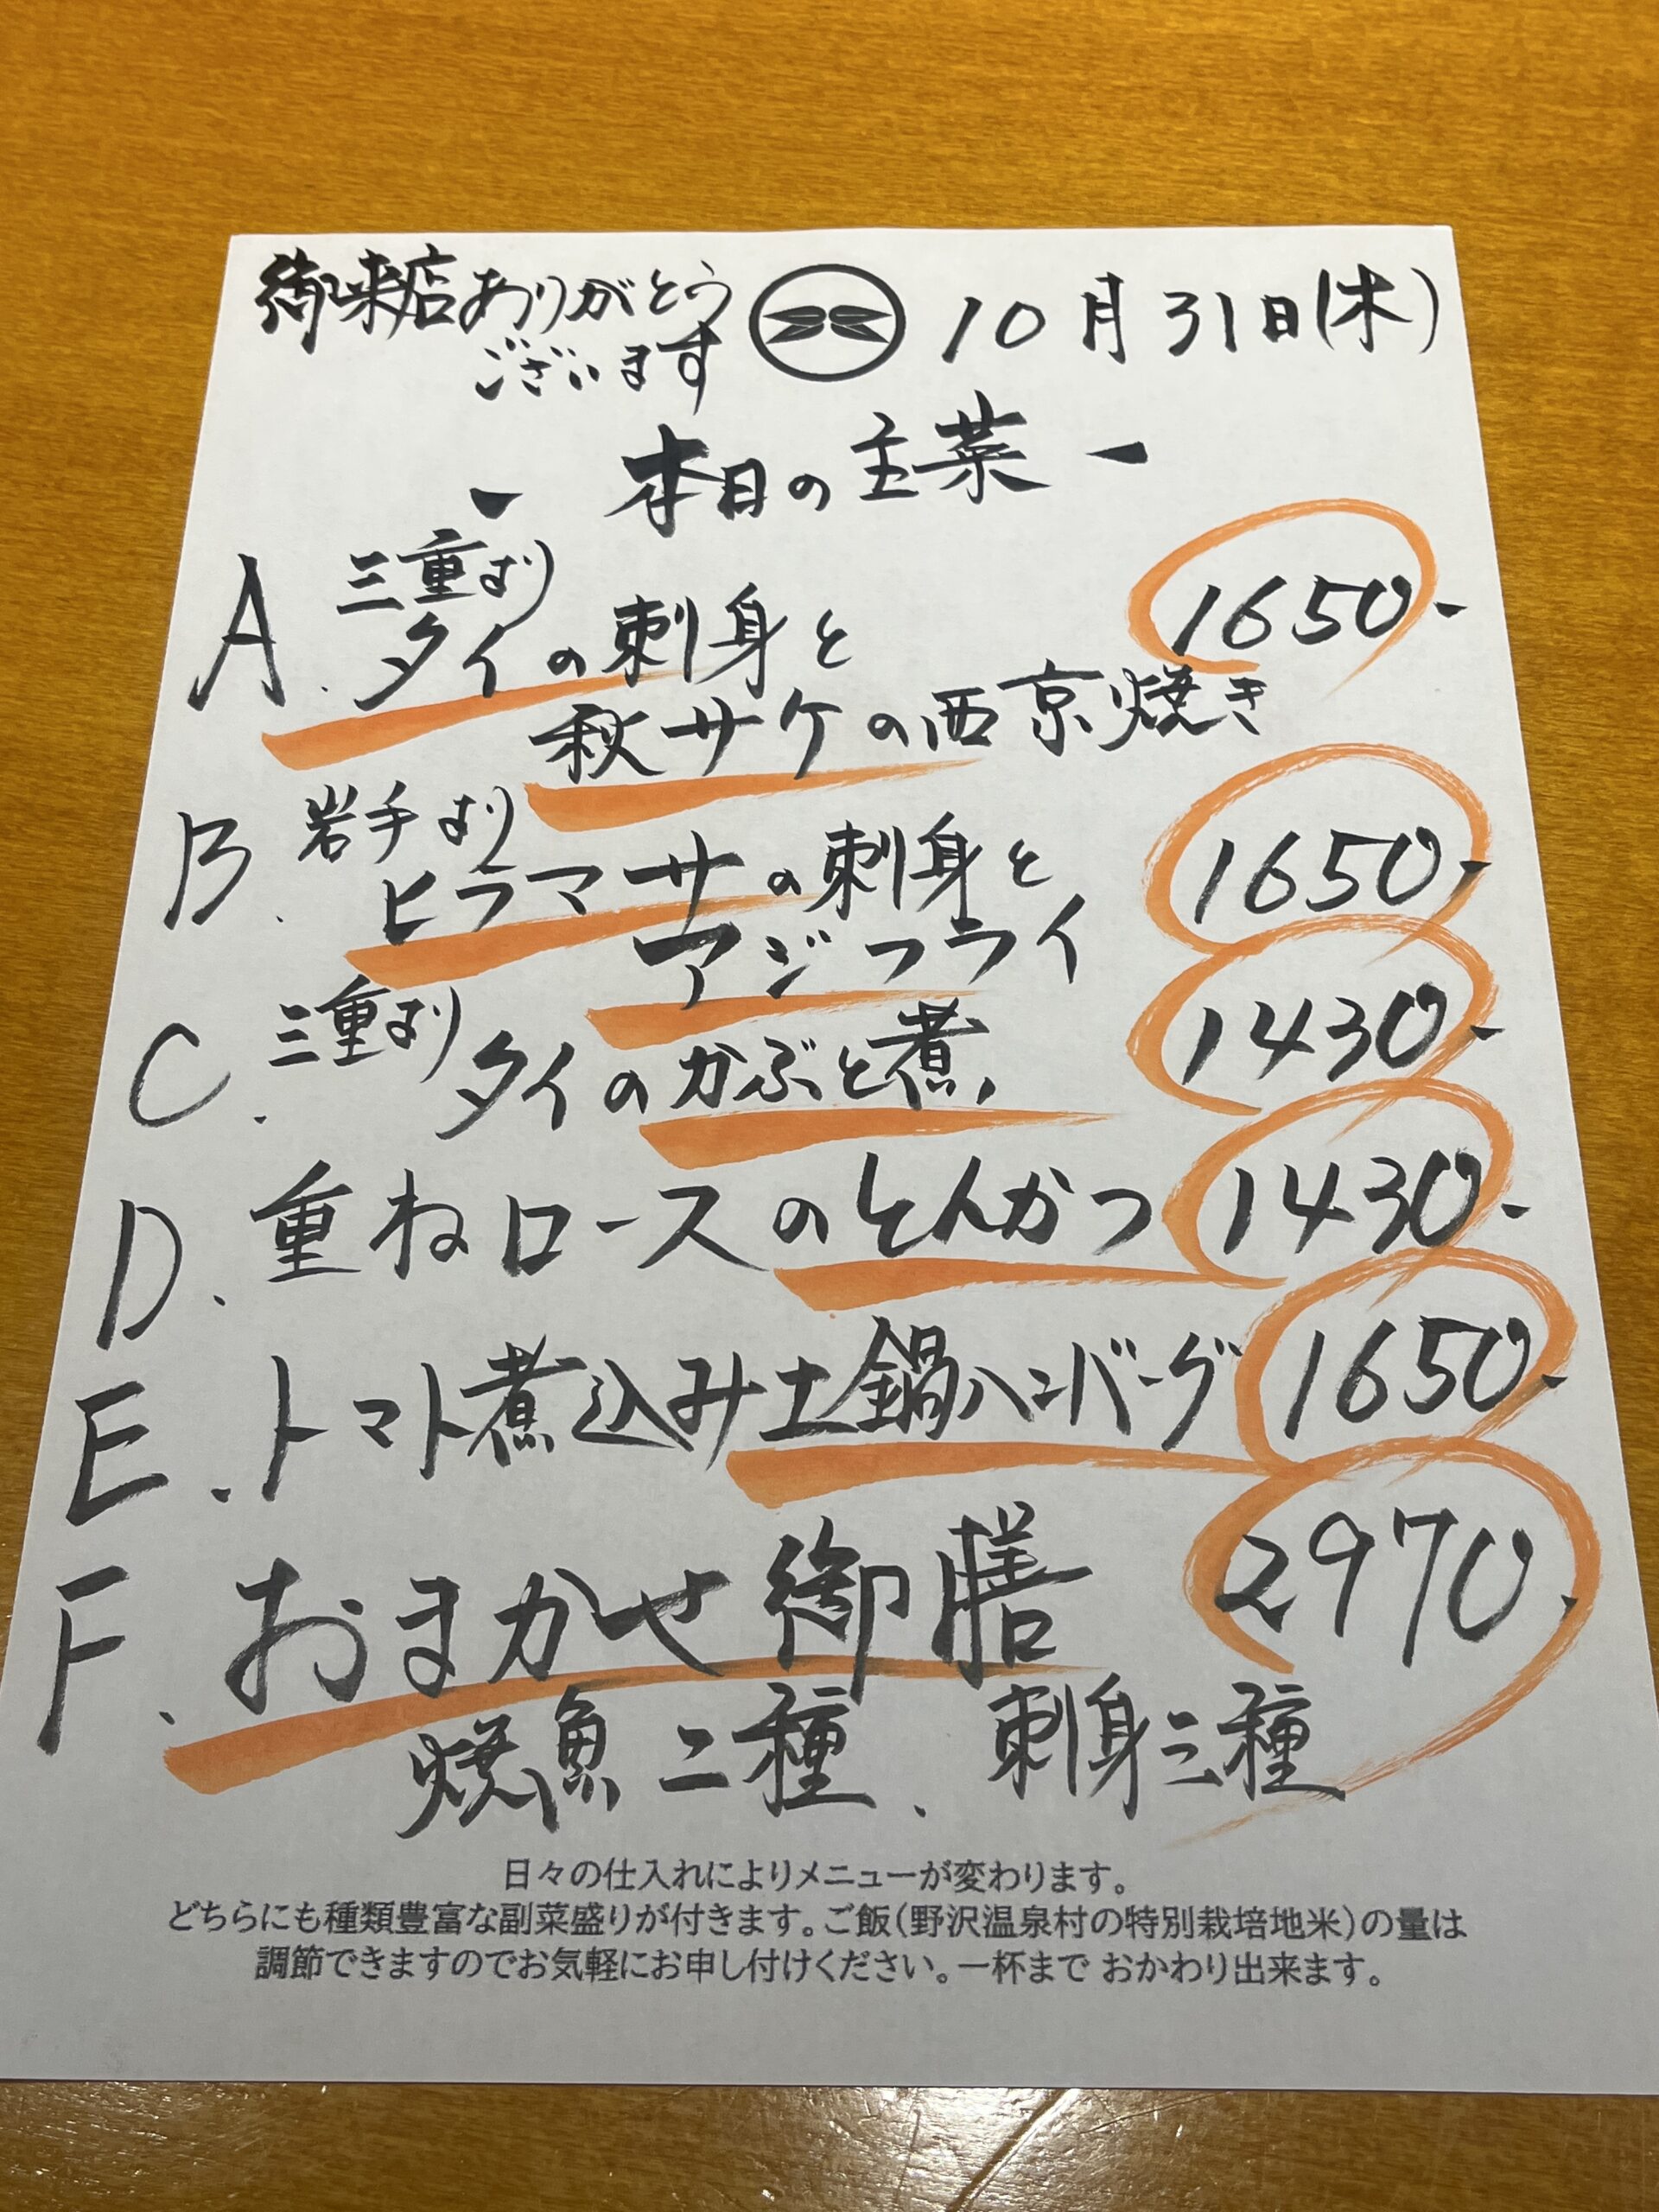 御来店ありがとう
ございます
10月31日(木)
- 本日の主菜 -
A. 三重より
タイの刺身と 1650-
秋サケの西京焼き
B. 岩手より
ヒラマサの刺身と 1650-
アジフライ
C. 三重より タイのかぶと煮 1430-
D. 重ねロースのとんかつ 1430-
E. トマト煮込み土鍋ハンバーグ 1650-
F. おまかせ御膳 2970-
焼魚二種、刺身三種
日々の仕入れによりメニューが変わります。
どちらにも種類豊富な副菜盛りが付きます。ご飯(野沢温泉村の特別栽培地米)の量は
調節できますのでお気軽にお申し付けください。一杯まで おかわり出来ます。